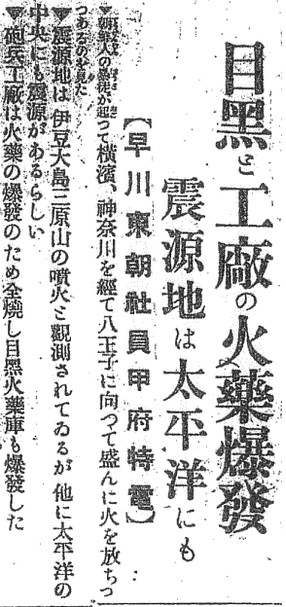 目黑と工廠の火藥爆發
震源地は太平洋にも
【早川東朝社員甲府特電】
▼朝鮮人の暴徒が起つて橫濱、神奈川を經て八王子に向つて盛んに火を放ちつ
つあるのを見た
▼震源地は伊豆大島三原山の噴火と觀測されてゐるが他に太平洋の
中央にも震源があるらしい
▼砲兵工廠は火藥の爆發のため全燒し目黑火藥庫も爆發した